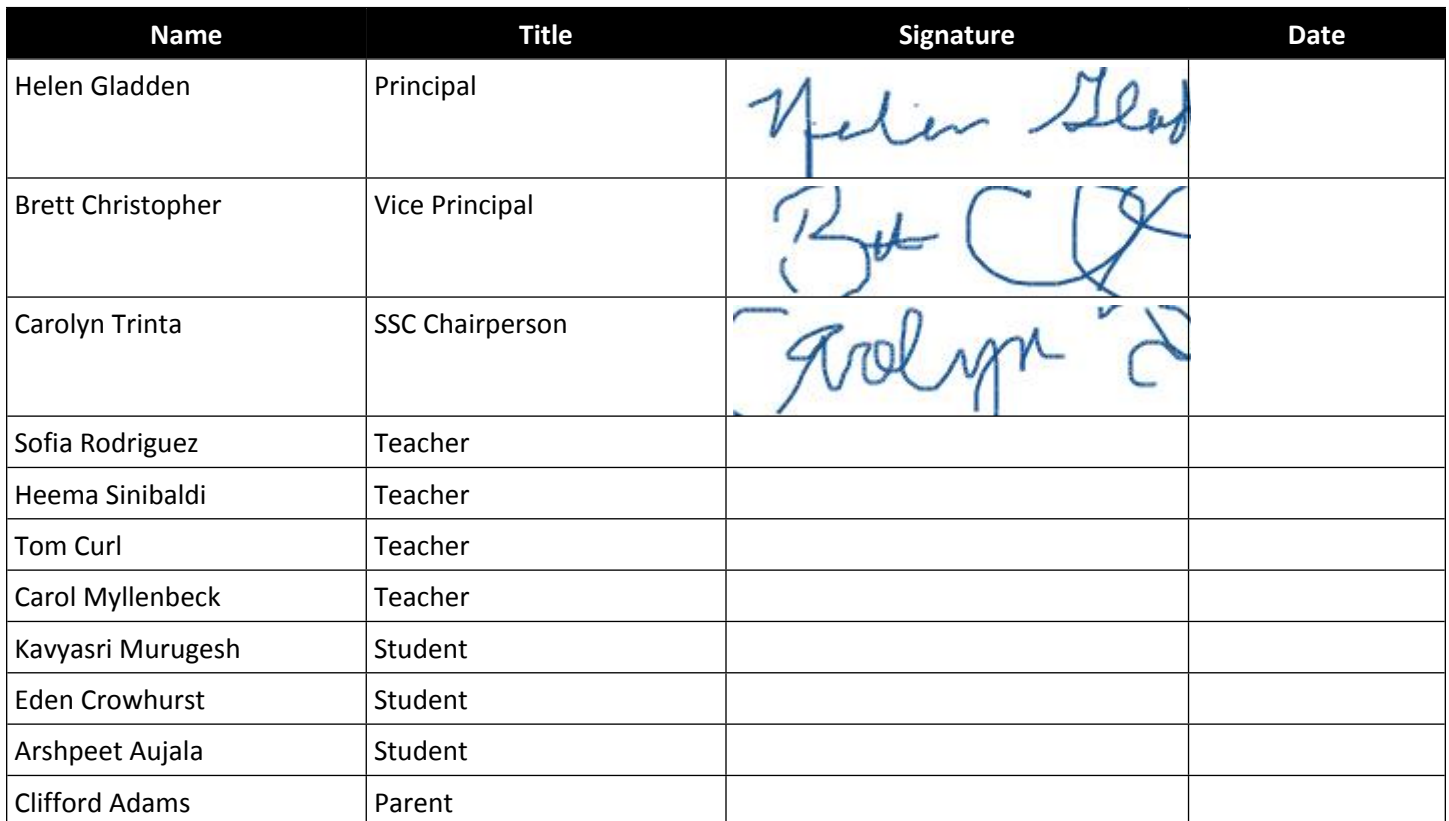 Name Title Signature Date
Helen Gladden Principal Helen Glad
Brett Christopher Vice Principal
Carolyn Trinta SSC Chairperson Carolyn
Sofia Rodriguez Teacher
Heema Sinibaldi Teacher
Tom Curl Teacher
Carol Myllenbeck Teacher
Kavyasri Murugesh Student
Eden Crowhurst Student
Arshpeet Aujala Student
Clifford Adams Parent